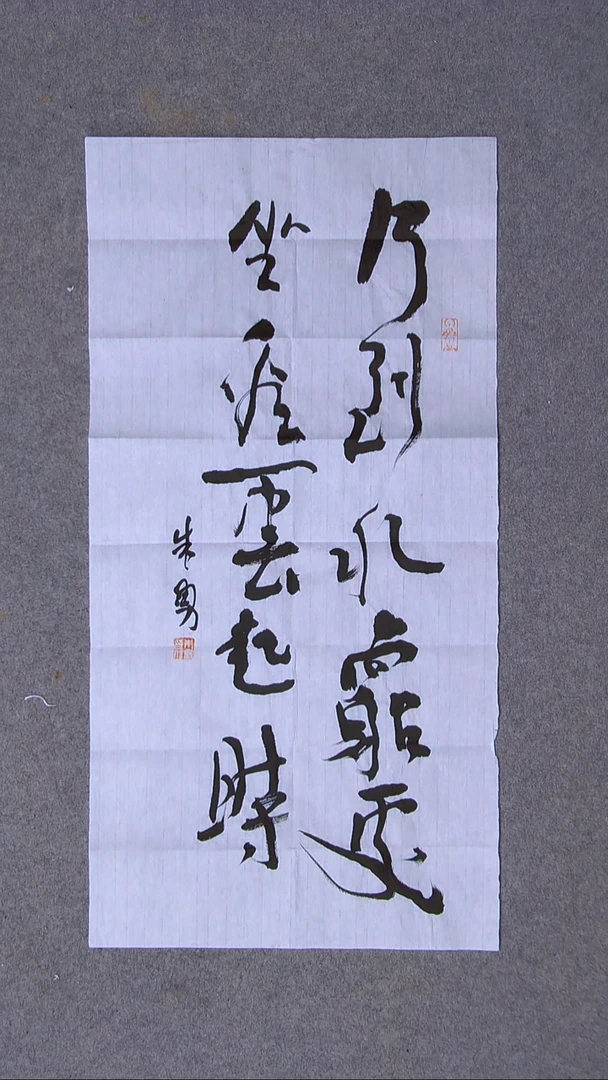 行到水窮處
坐看雲起時
朱勇